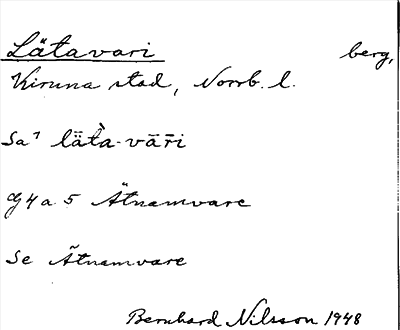 Lätavari berg,
Kiruna stad, Norrb. l.
Sa⁷ lǟtà-vāri
G4 a 5 Ätnamvare
Se Ätnamvare
Bernhard Nilsson 1948